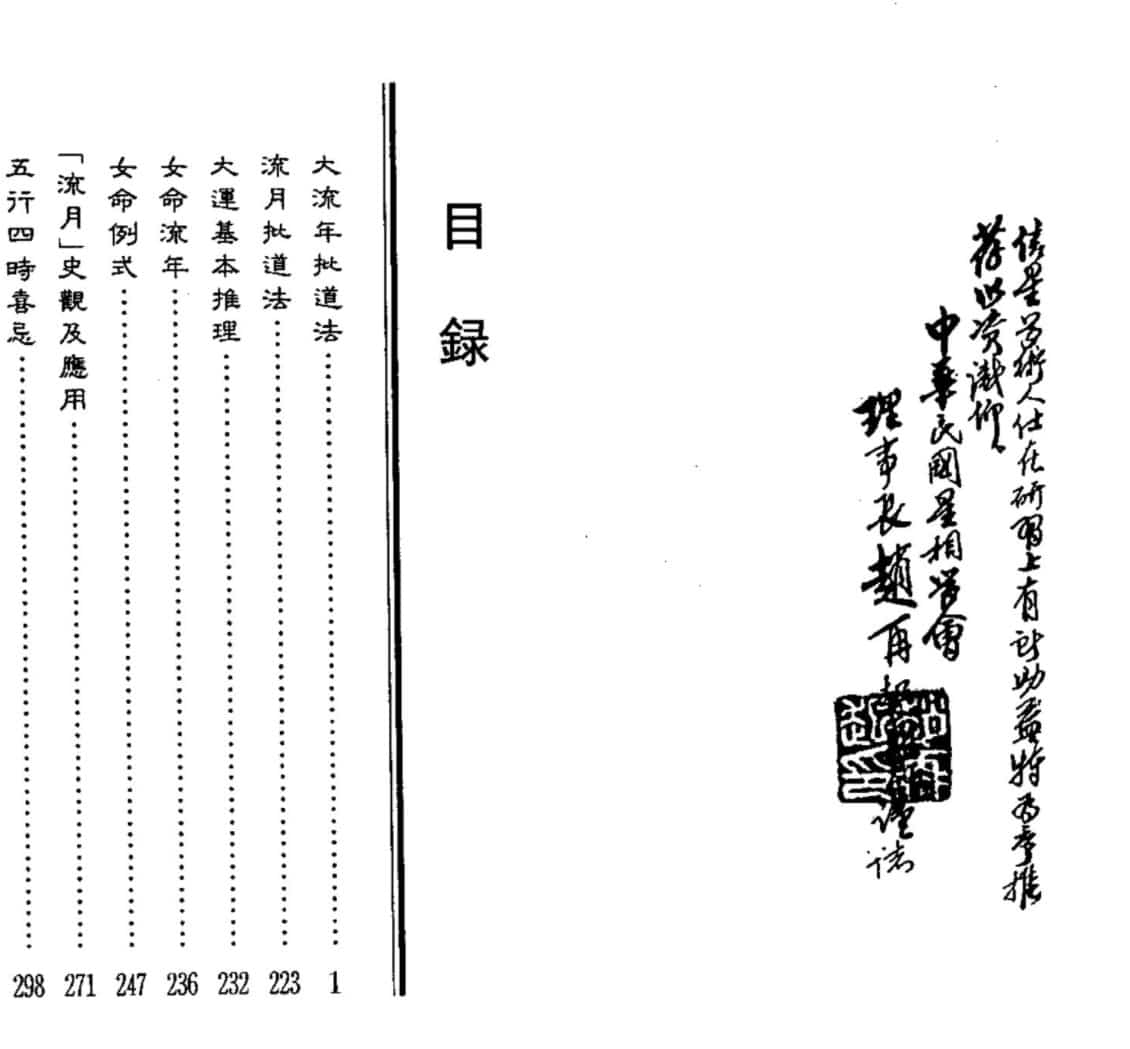 俾星學術人仕在研習上有所助益特為序推
薦以資識仰
中華民國星相學會
理事長趙再 謹誌
目錄
大流年批道法 1
流月批道法 223
大運基本推理 232
女命流年 236
女命例式 247
「流月」史觀及應用 271
五行四時喜忌 298